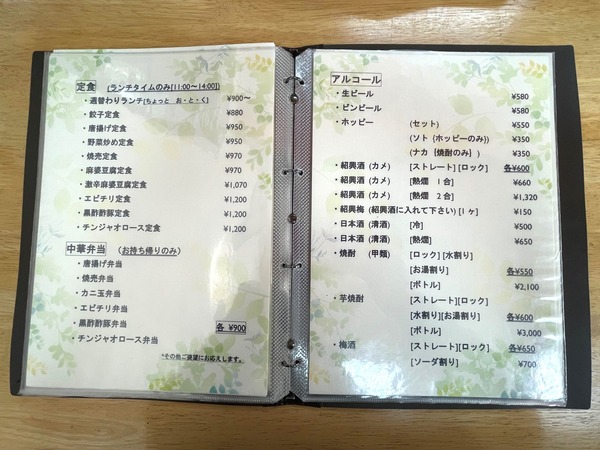 定食 (ランチタイムのみ[11:00～14:00])
・週替わりランチ[ちょっと お・と・く] ¥900～
・餃子定食 ¥880
・唐揚げ定食 ¥950
・野菜炒め定食 ¥950
・焼売定食 ¥970
・麻婆豆腐定食 ¥970
・激辛麻婆豆腐定食 ¥1,070
・エビチリ定食 ¥1,200
・黒酢酢豚定食 ¥1,200
・チンジャオロース定食 ¥1,200
中華弁当 (お持ち帰りのみ)
・唐揚げ弁当
・焼売弁当
・カニ玉弁当
・エビチリ弁当
・黒酢酢豚弁当 各 ¥900
・チンジャオロース弁当
*その他ご要望にお応えします。
アルコール
・生ビール ¥580
・ビンビール ¥580
・ホッピー (セット) ¥550
(ソト {ホッピーのみ}) ¥350
(ナカ [焼酎のみ] ) ¥350
・紹興酒 (カメ) [ストレート] [ロック] 各¥600
・紹興酒 (カメ) [熱燗 1合] ¥660
・紹興酒 (カメ) [熱燗 2合] ¥1,320
・紹興梅 (紹興酒に入れて下さい) [1ヶ] ¥150
・日本酒 (清酒) [冷] ¥500
・日本酒 (清酒) [熱燗] ¥650
・焼酎 (甲類) [ロック] [水割り]
[お湯割り] 各¥550
[ボトル] ¥2,100
・芋焼酎 [ストレート][ロック]
[水割り][お湯割り] 各¥600
[ボトル] ¥3,000
・梅酒 [ストレート][ロック] 各¥650
[ソーダ割り] ¥700